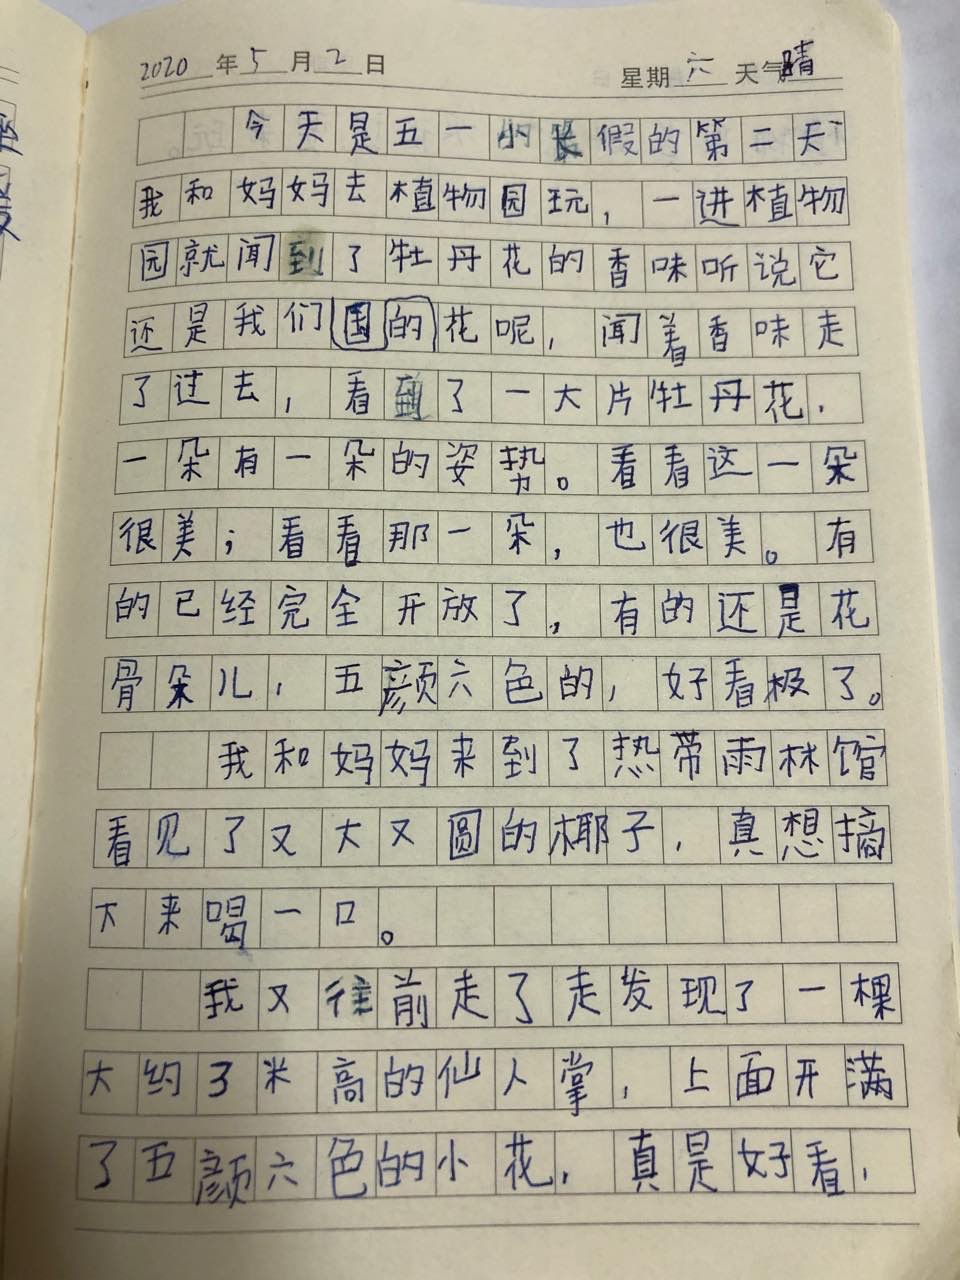 2020年5月2日 星期六 天气晴
今天是五一小长假的第二天
我和妈妈去植物园玩，一进植物
园就闻到了牡丹花的香味听说它
还是我们国的花呢，闻着香味走
了过去，看到了一大片牡丹花，
一朵有一朵的姿势。看看这一朵
很美；看看那一朵，也很美。有
的已经完全开放了，有的还是花
骨朵儿，五颜六色的，好看极了。
我和妈妈来到了热带雨林馆
看见了又大又圆的椰子，真想摘
下来喝一口。
我又往前走了走发现了一棵
大约3米高的仙人掌，上面开满
了五颜六色的小花，真是好看，